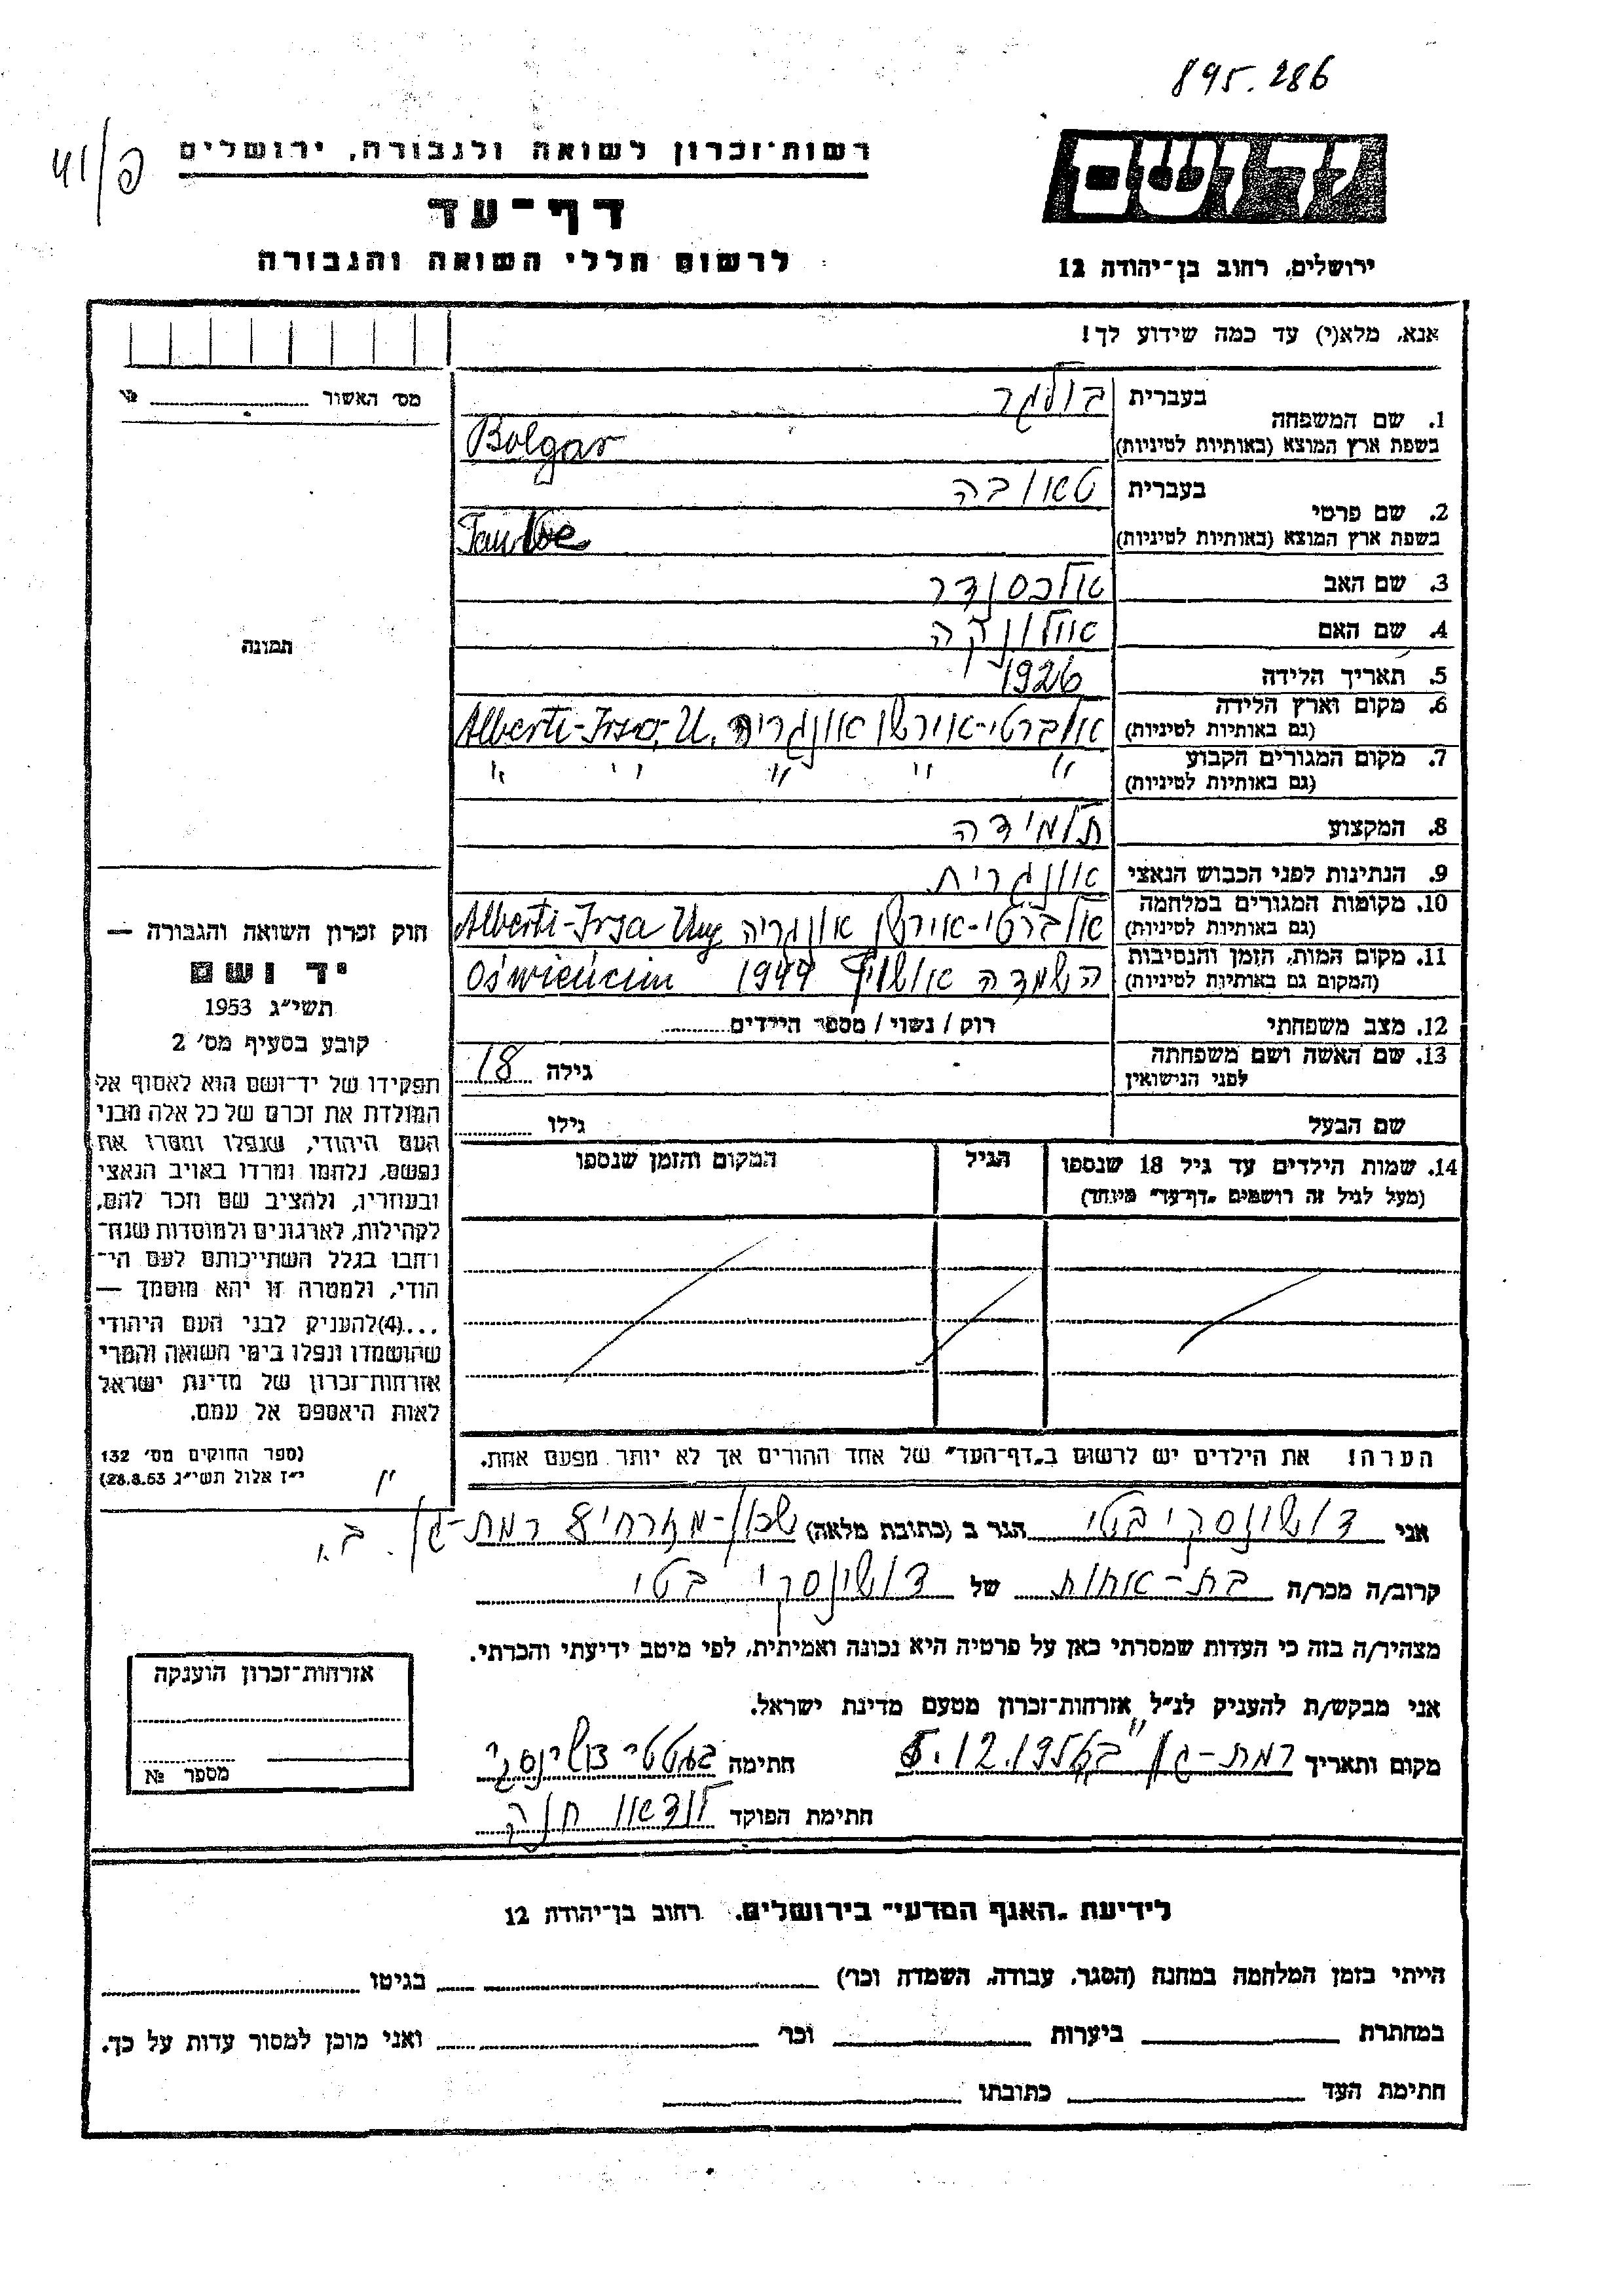 895.286
41/פ
רשות־זכרון לשואה ולגבורה, ירושלים
דף־עד
לרשום חללי השואה והגבורה
יד ושם
ירושלים, רחוב בן־יהודה 12
אנא, מלא(י) עד כמה שידוע לך!
מס׳ האשור №
1. שם המשפחה
בעברית בולגר
בשפת ארץ המוצא (באותיות לטיניות) Bolgar
2. שם פרטי
בעברית טאובה
בשפת ארץ המוצא (באותיות לטיניות) Taube
3. שם האב אלכסנדר
4. שם האם אילונקה
5. תאריך הלידה 1926
6. מקום וארץ הלידה
(גם באותיות לטיניות) אלברטי-אירשו אונגריה Alberti-Irso, U.
7. מקום המגורים הקבוע
(גם באותיות לטיניות) " " " " "
8. המקצוע תלמידה
9. הנתינות לפני הכבוש הנאצי אונגרית
10. מקומות המגורים במלחמה
(גם באותיות לטיניות) אלברטי-אירשו אונגריה Alberti-Irsa Ung
11. מקום המות, הזמן והנסיבות
(המקום גם באותיות לטיניות) השמדה אושויץ 1944 Oświęncim
12. מצב משפחתי רוק / נשוי / מספר הילדים
13. שם האשה ושם משפחתה
לפני הנישואין גילה 18
שם הבעל גילו
14. שמות הילדים עד גיל 18 שנספו
(מעל לגיל זה רושמים „דף־עד״ מיוחד)
הגיל
המקום והזמן שנספו
הערה! את הילדים יש לרשום ב„דף־העד״ של אחד ההורים אך לא יותר מפעם אחת.
תמונה
חוק זכרון השואה והגבורה —
יד ושם
תשי״ג 1953
קובע בסעיף מס׳ 2
תפקידו של יד־ושם הוא לאסוף אל
המולדת את זכרם של כל אלה מבני
העם היהודי, שנפלו ומסרו את
נפשם, נלחמו ומרדו באויב הנאצי
ובעוזריו, ולהציב שם וזכר להם,
לקהילות, לארגונים ולמוסדות שנח־
רבו בגלל השתייכותם לעם הי־
הודי, ולמטרה זו יהא מוסמך —
...(4)להעניק לבני העם היהודי
שהושמדו ונפלו בימי השואה והמרי
אזרחות־זכרון של מדינת ישראל
לאות היאספם אל עמם.
(ספר החוקים מס׳ 132
י״ז אלול תשי״ג 28.8.53)
אני דושינסקי בטי הגר ב (כתובת מלאה) שכון-מזרחי 8 רמת-גן. ב.
קרוב/ה מכר/ה בת-אחות של דושינסקי בטי
מצהיר/ה בזה כי העדות שמסרתי כאן על פרטיה היא נכונה ואמיתית, לפי מיטב ידיעתי והכרתי.
אני מבקש/ת להעניק לנ״ל אזרחות־זכרון מטעם מדינת ישראל.
מקום ותאריך רמת-גן חתימה בטטי דושינסקי
חתימת הפוקד לנדאו חנה
אזרחות־זכרון הוענקה
מספר №
לידיעת „האגף המדעי״ בירושלים, רחוב בן־יהודה 12
הייתי בזמן המלחמה במחנה (הסגר, עבודה, השמדה וכו׳) בגיטו
במחתרת ביערות וכו׳ ואני מוכן למסור עדות על כך.
חתימת העד כתובתו